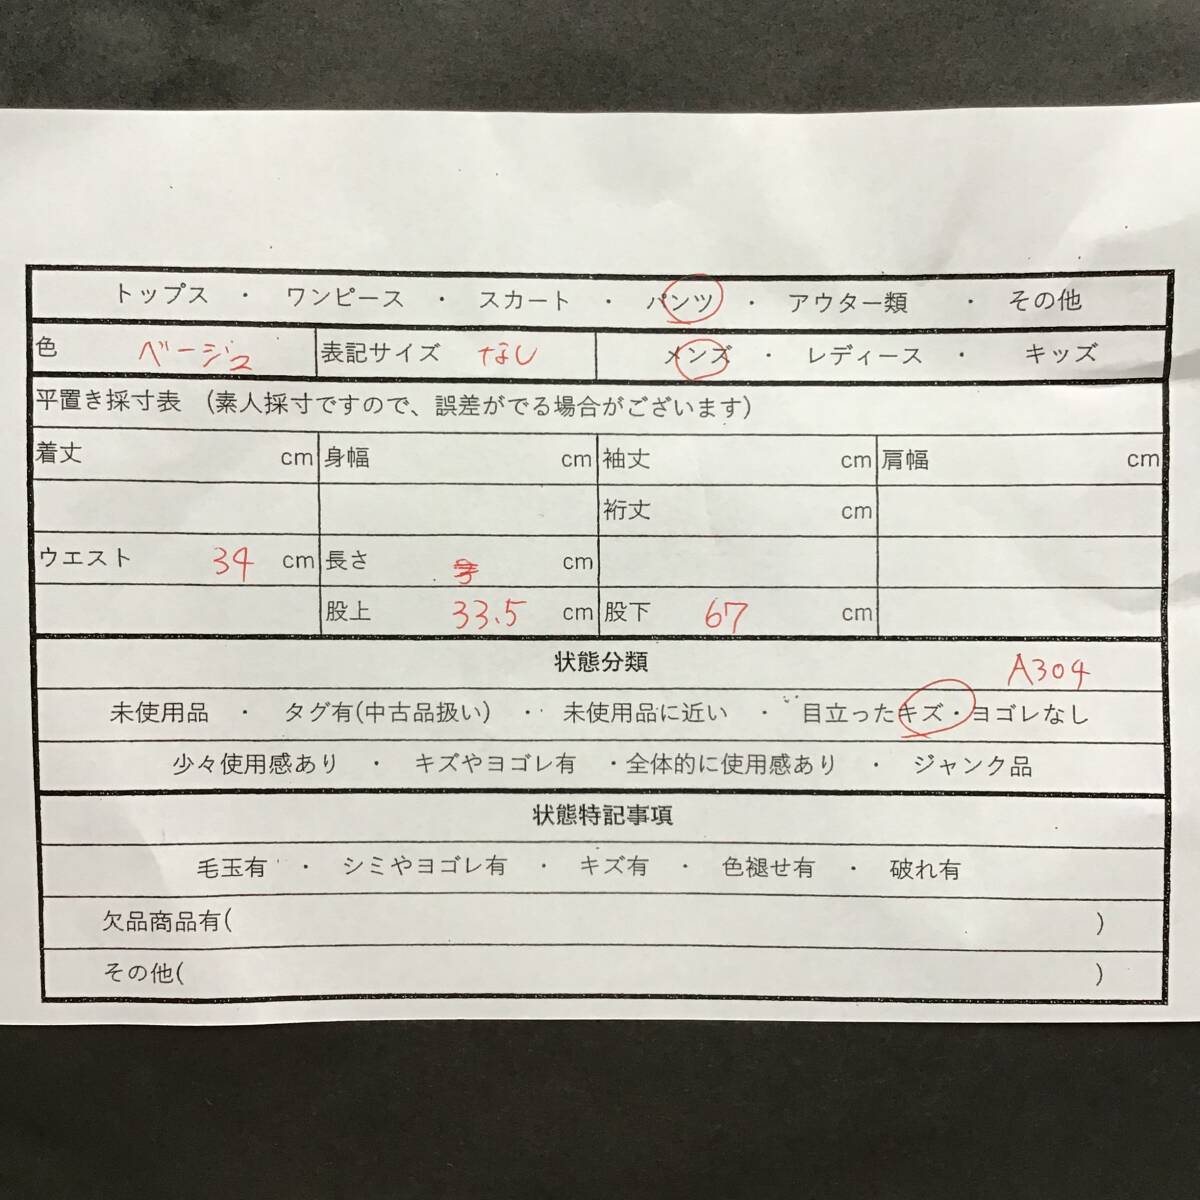 トップス ・ ワンピース ・ スカート ・ パンツ ・ アウター類 ・ その他
色 ベージュ 表記サイズ なし メンズ ・ レディース ・ キッズ
平置き採寸表 (素人採寸ですので、誤差がでる場合がございます)
着丈 cm 身幅 cm 袖丈 cm 肩幅 cm
裄丈 cm
ウエスト 34 cm 長さ cm
股上 33.5 cm 股下 67 cm
状態分類 A304
未使用品 ・ タグ有(中古品扱い) ・ 未使用品に近い ・ 目立ったキズ・ヨゴレなし
少々使用感あり ・ キズやヨゴレ有 ・全体的に使用感あり ・ ジャンク品
状態特記事項
毛玉有 ・ シミやヨゴレ有 ・ キズ有 ・ 色褪せ有 ・ 破れ有
欠品商品有( )
その他( )